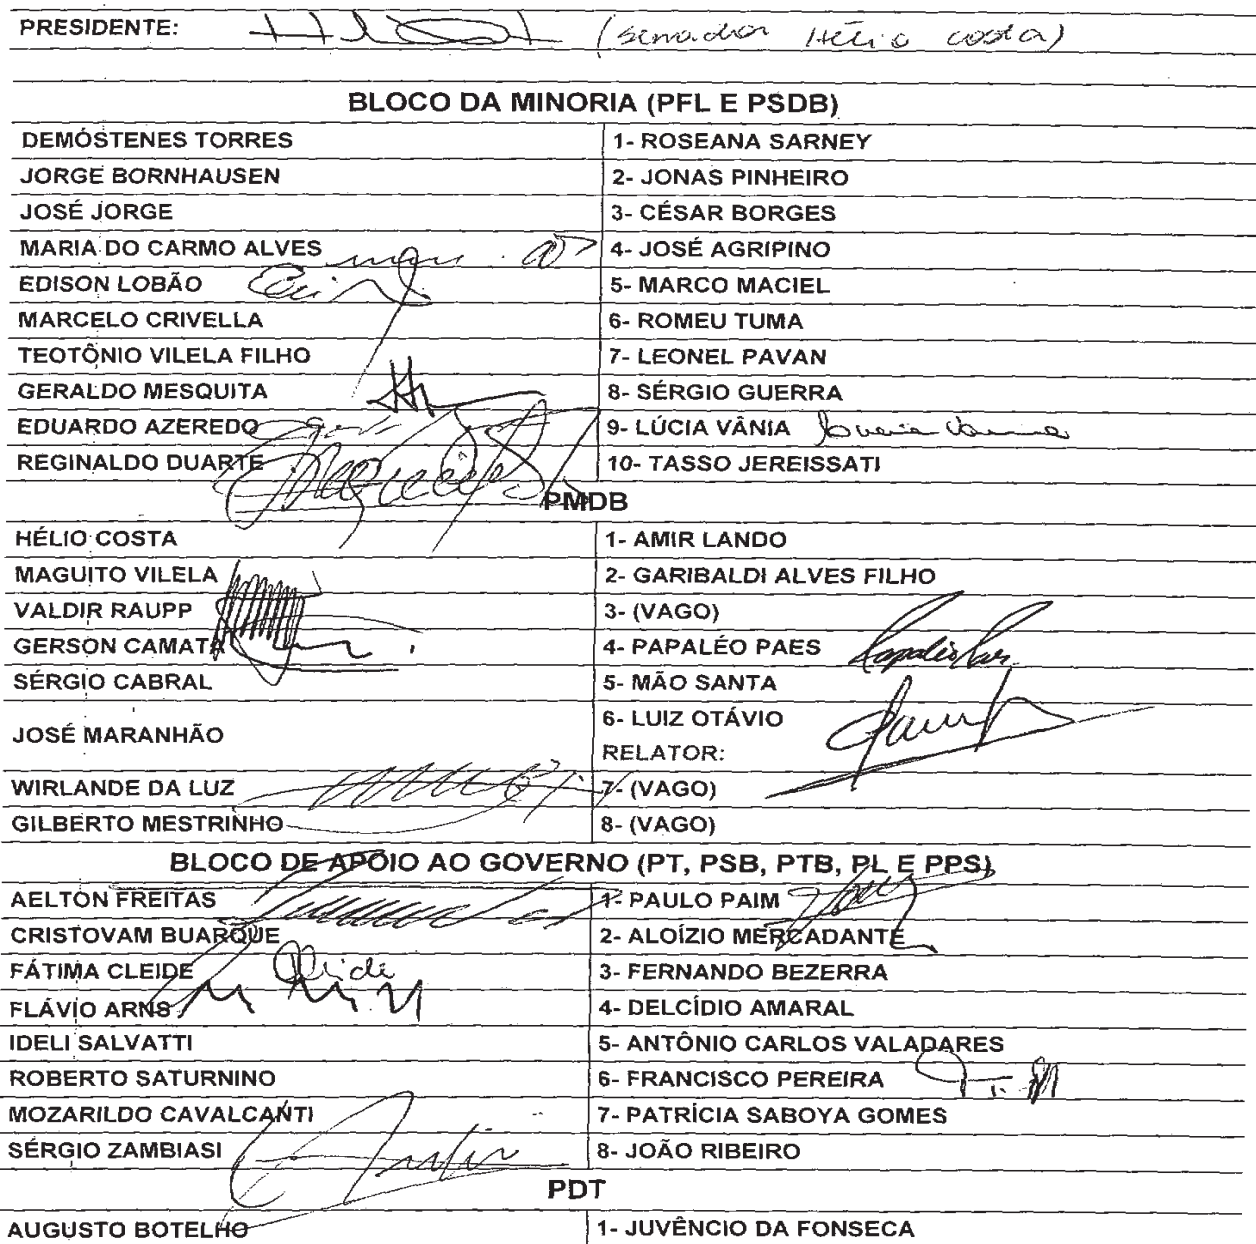 PRESIDENTE: (senador Hélio Costa)
BLOCO DA MINORIA (PFL E PSDB)
DEMÓSTENES TORRES 1- ROSEANA SARNEY
JORGE BORNHAUSEN 2- JONAS PINHEIRO
JOSÉ JORGE 3- CÉSAR BORGES
MARIA DO CARMO ALVES 4- JOSÉ AGRIPINO
EDISON LOBÃO 5- MARCO MACIEL
MARCELO CRIVELLA 6- ROMEU TUMA
TEOTÔNIO VILELA FILHO 7- LEONEL PAVAN
GERALDO MESQUITA 8- SÉRGIO GUERRA
EDUARDO AZEREDO 9- LÚCIA VÂNIA Lucia Vania
REGINALDO DUARTE 10- TASSO JEREISSATI
PMDB
HÉLIO COSTA 1- AMIR LANDO
MAGUITO VILELA 2- GARIBALDI ALVES FILHO
VALDIR RAUPP 3- (VAGO)
GERSON CAMATA 4- PAPALÉO PAES Papaléo Paes
SÉRGIO CABRAL 5- MÃO SANTA
JOSÉ MARANHÃO 6- LUIZ OTÁVIO
RELATOR:
WIRLANDE DA LUZ 7- (VAGO)
GILBERTO MESTRINHO 8- (VAGO)
BLOCO DE APOIO AO GOVERNO (PT, PSB, PTB, PL E PPS)
AELTON FREITAS 1- PAULO PAIM
CRISTOVAM BUARQUE 2- ALOÍZIO MERCADANTE
FÁTIMA CLEIDE Cleide 3- FERNANDO BEZERRA
FLÁVIO ARNS 4- DELCÍDIO AMARAL
IDELI SALVATTI 5- ANTÔNIO CARLOS VALADARES
ROBERTO SATURNINO 6- FRANCISCO PEREIRA
MOZARILDO CAVALCANTI 7- PATRÍCIA SABOYA GOMES
SÉRGIO ZAMBIASI 8- JOÃO RIBEIRO
PDT
AUGUSTO BOTELHO 1- JUVÊNCIO DA FONSECA